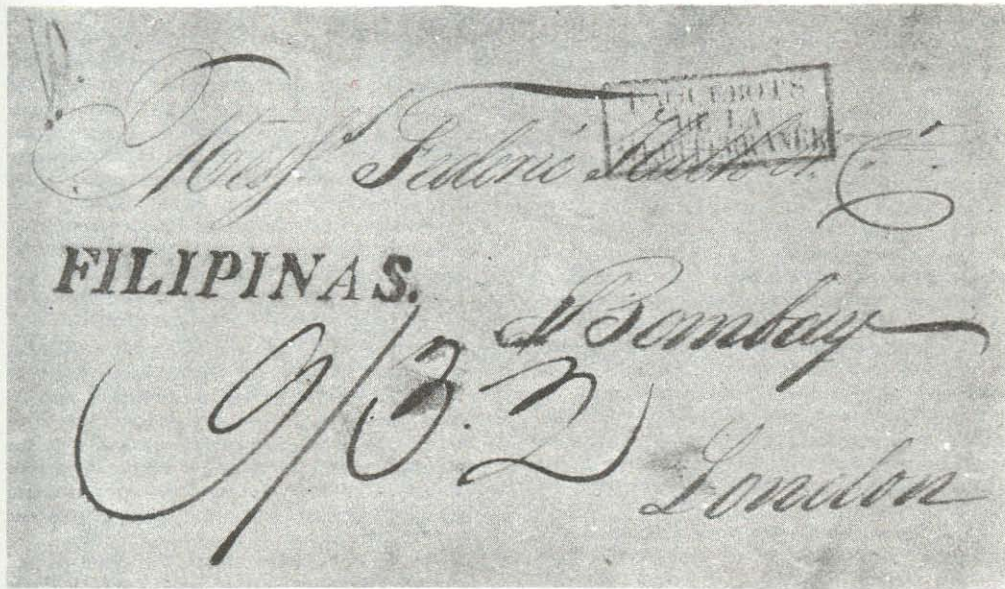 PAQUEBOTS
DE LA
MEDITERRANEE
Mess.rs Frederic & Co
FILIPINAS.
Bombay
9/3.2
London